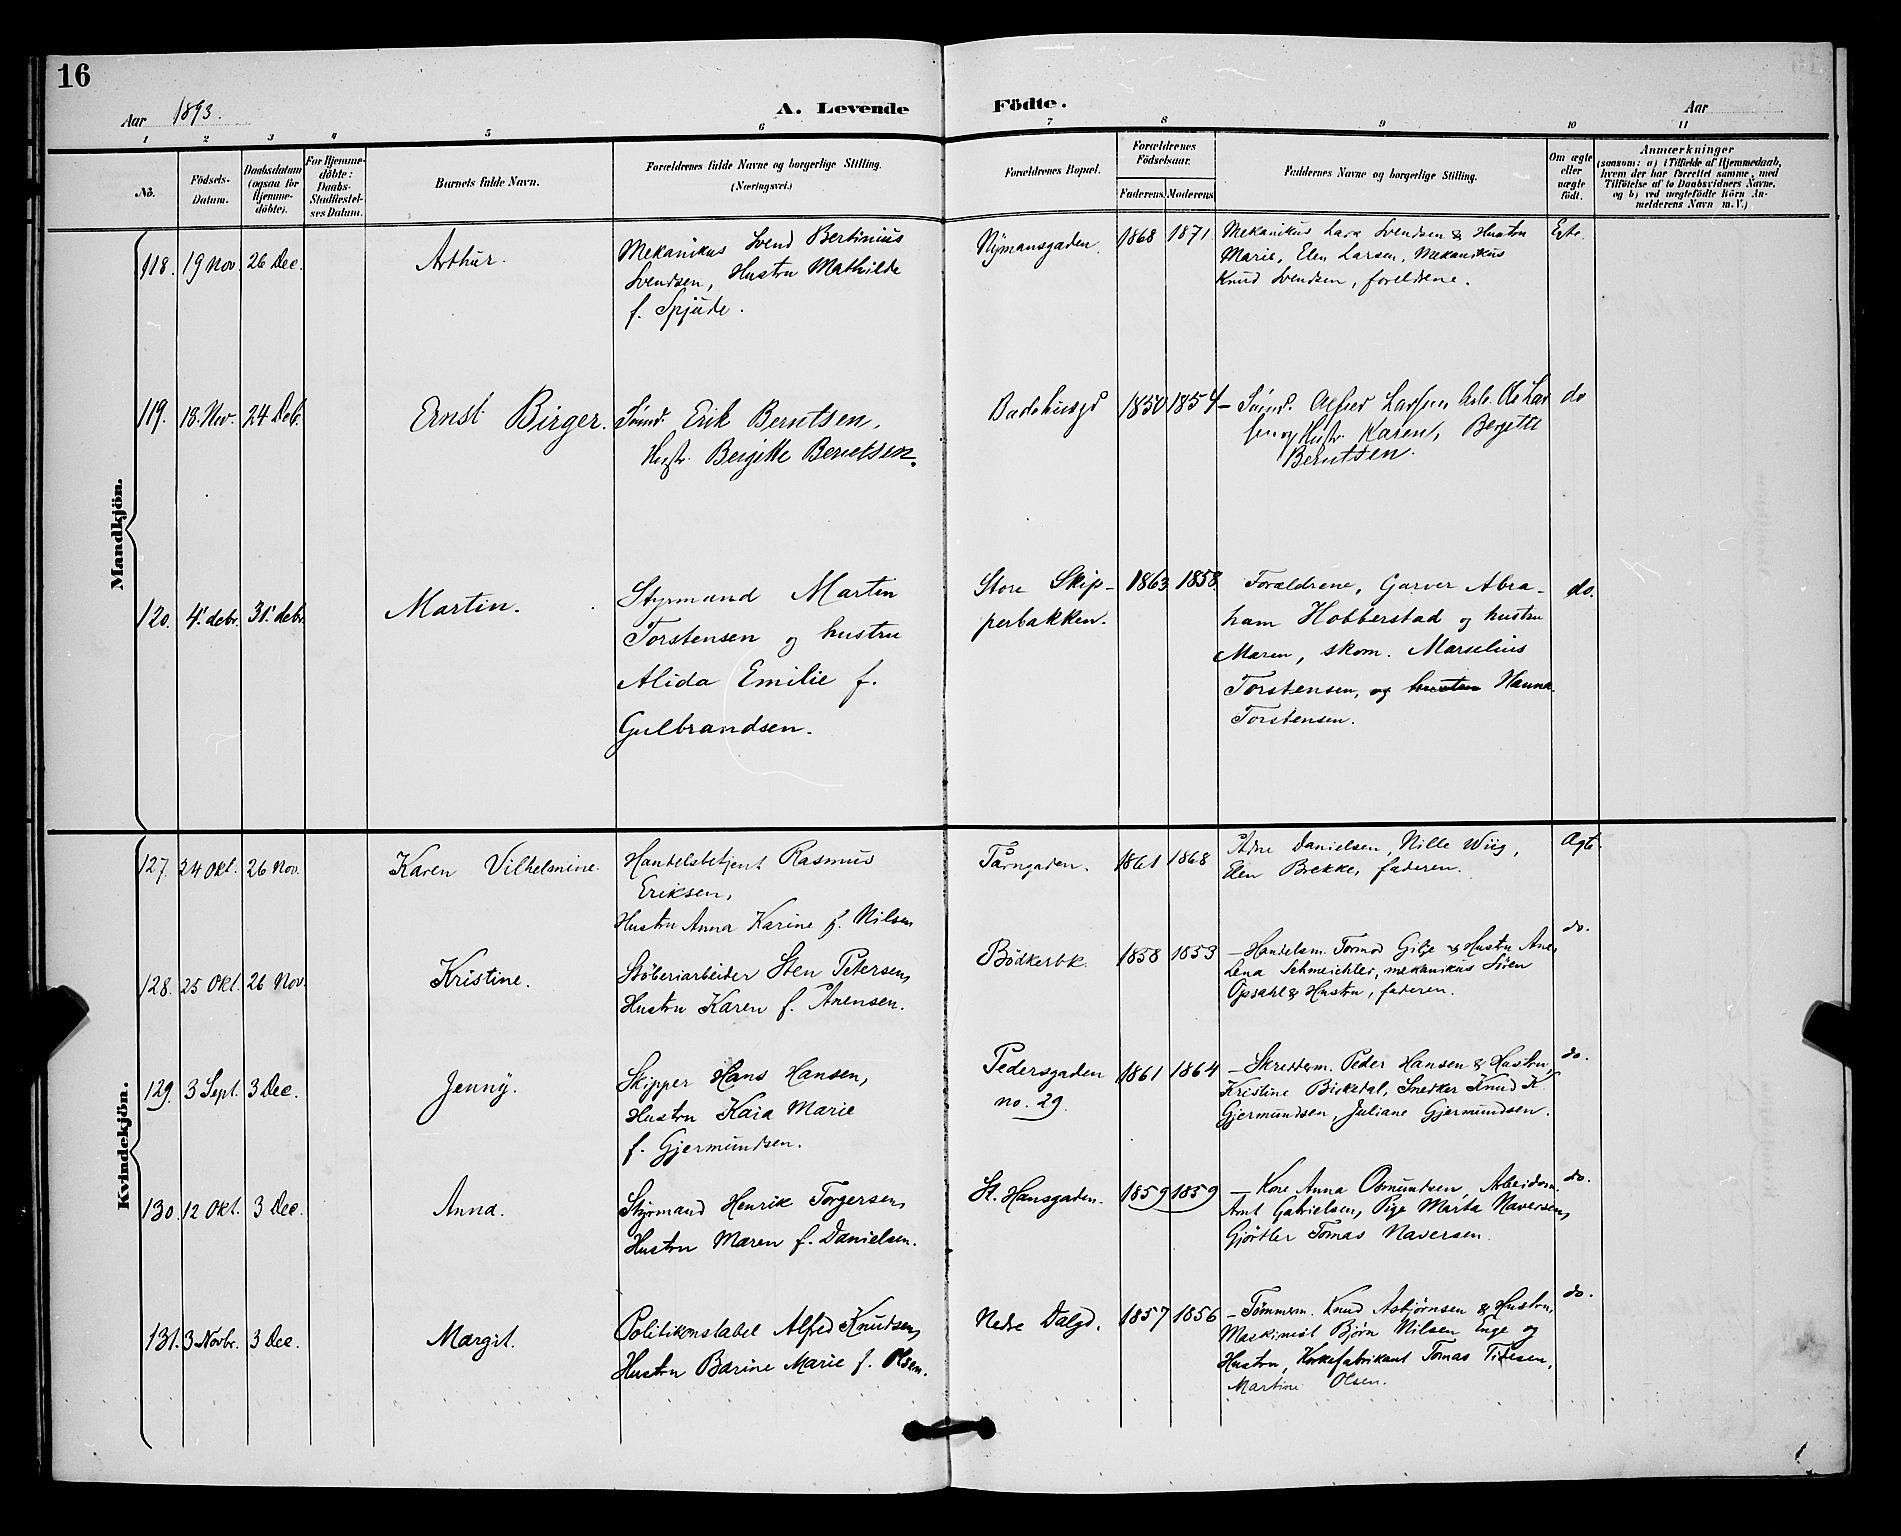 16
Aar 1893.
A. Levende Födte.
Aar
1 2 3 4 5 6 7 8 9 10 11
No.
Födsels-
Datum.
Daabsdatum
(ogsaa for
Hjemme-
döbte).
For Hjemme-
döbte:
Daabs-
Stadfæstel-
ses Datum.
Barnets fulde Navn.
Forældrenes fulde Navne og borgerlige Stilling.
(Næringsvei.)
Forældrenes Bopæl.
Forældrenes
Födselsaar.
Faderens. Moderens.
Faddernes Navne og borgerlige Stilling.
Om ægte
eller
uægte
födt.
Anmærkninger
(saasom: a) i Tilfælde af Hjemmedaab,
hvem der har forrettet samme, med
Tilföielse af to Daabsvidners Navne,
og b) ved uægtefödte Börn An-
melderens Navn m. V.)
Mandkjön.
118. 19 Nov 26 Dec. Arthur.
Mekanikus Svend Bertinius
Svendsen, Hustru Mathilde
f. Spjude.
Nymansgaden. 1868 1871
Mekanikus Lars Svendsen & Hustru
Marie, Elen Larsen, Mekanikus
Knud Svendsen, foreldrene.
Egte.
119. 18. Nov. 24 Deb. Ernst Birger.
Erik Berntsen,
Hustr. Bergitte Berntsen.
Badehusgd 1850 1854
Alfred Larsen Arb. Ole Lar
sen og Hustr. Karen, Bergitte
Berntsen.
do
120. 4. debr. 31. debr. Martin.
Styrmand Martin
Torstensen og hustru
Alida Emilie f.
Gulbrandsen.
Store Skip-
perbakken.
1863 1858.
Forældrene, Garver Abra-
ham Hobberstad og hustru
Maren, skom. Marselius
Torstensen, og hustru Hanna
Torstensen.
do.
Kvindekjön.
127. 24 Okt. 26 Nov. Karen Vilhelmine.
Handelsbetjent Rasmus
Eriksen,
Hustru Anna Karine f. Nilsen
Tårngaden. 1861 1868
Ådne Danielsen, Nille Wiig,
Elen Brekke, faderen.
Ægte.
128. 25 Okt. 26 Nov. Kristine.
Støberiarbeider Sten Petersen,
Hustru Karen f. Ånensen.
Bödkerbk. 1858 1853
– Handelsm. Tormod Gilje & Hustru Ane,
Lena Schmeichler, mekanikus Sören
Opsahl & Hustru, faderen.
do.
129. 3 Sept. 3 Dec. Jenny.
Skipper Hans Hansen,
Hustru Kaia Marie
f. Gjermundsen.
Pedersgaden
no. 29.
1861 1864
– Skrædderm. Peder Hansen & Hustru,
Kristine Birkedal, Snedker Knud K.
Gjermundsen, Juliane Gjermundsen.
do.
130. 12 Okt. 3 Dec. Anna.
Styrmand Henrik Torgersen,
Hustru Maren f. Danielsen.
St. Hansgaden. 1859 1859
– Kone Anna Osmundsen, Arbeidsm.
Arnt Gabrielsen, Pige Marta Naversen,
Gjörtler Tomas Naversen.
do.
131. 3 Novbr. 3 Dec. Margit.
Politikonstabel Alfred Knudsen,
Hustru Barine Marie f. Olsen.
Nedre Dalgd. 1857 1856
– Tömmerm. Knud Asbjörnsen & Hustru,
Maskinist Bjørn Nilsen Enge og
Hustru, Korkefabrikant Tomas
Martine Olsen.
do.